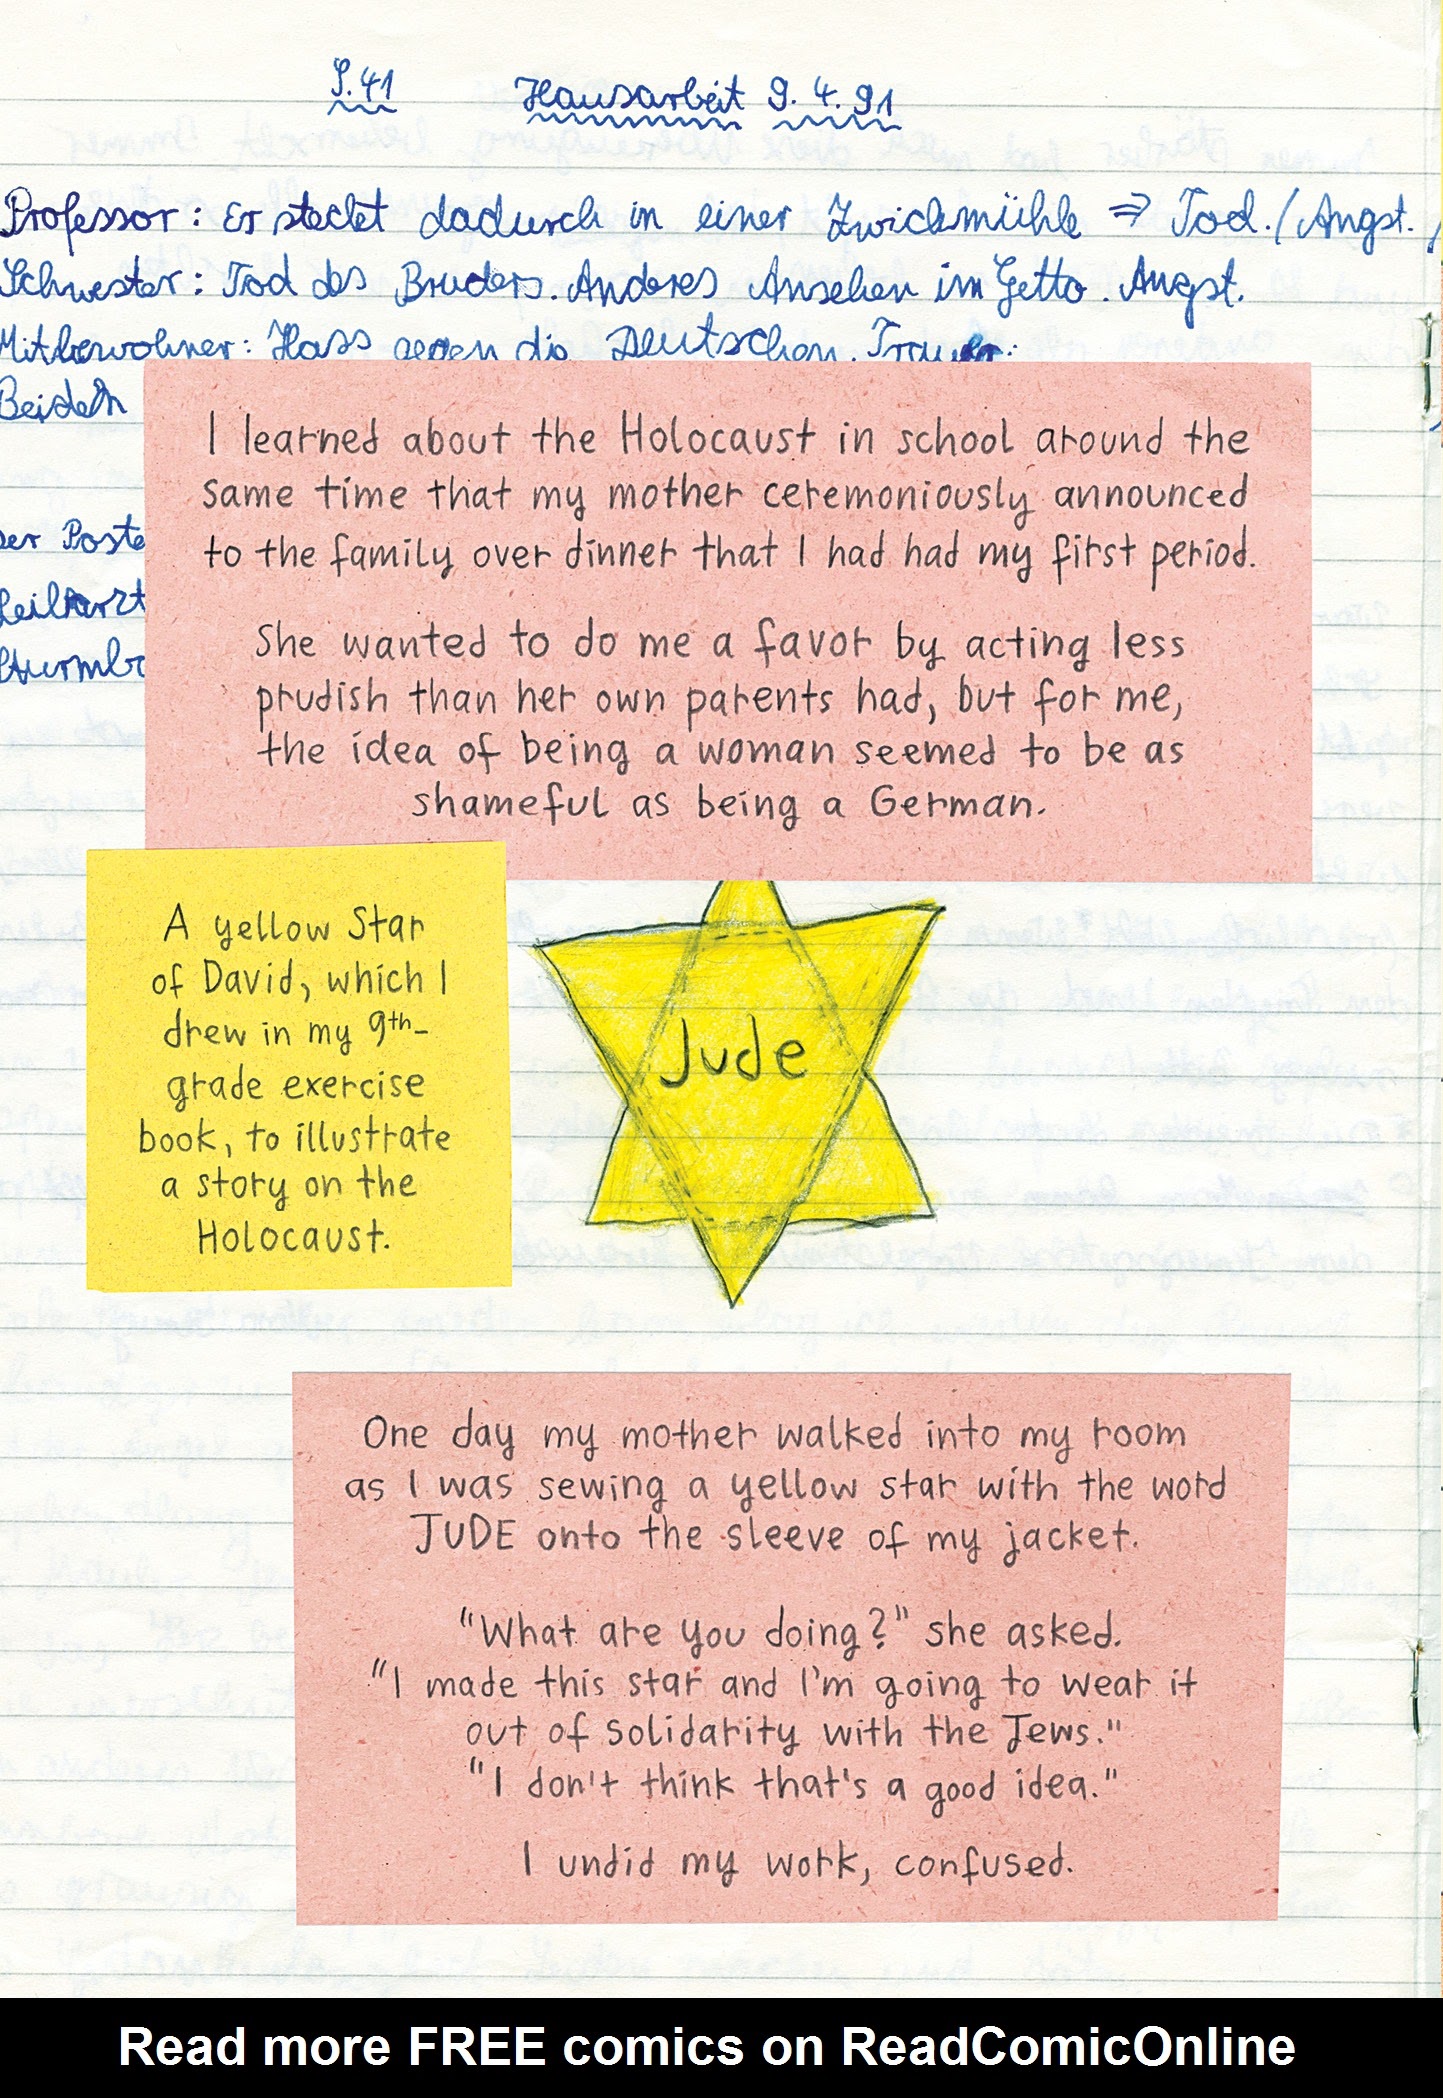 S. 41 Hausarbeit 9. 4. 91
Professor: Er steckt dadurch in einer Zwickmühle ⇒ Tod. / Angst.
Schwester: Tod des Bruders. Anderes Ansehen im Getto. Angst.
Mitbewohner: Hass gegen die Deutschen. Trauer.
Beiden
I learned about the Holocaust in school around the
same time that my mother ceremoniously announced
to the family over dinner that I had had my first period.
She wanted to do me a favor by acting less
prudish than her own parents had, but for me,
the idea of being a woman seemed to be as
shameful as being a German.
der Poste
Leibarzt
Sturmb
A yellow Star
of David, which I
drew in my 9th-
grade exercise
book, to illustrate
a story on the
Holocaust.
Jude
One day my mother walked into my room
as I was sewing a yellow star with the word
JUDE onto the sleeve of my jacket.
"What are you doing?" she asked.
"I made this star and I'm going to wear it
out of solidarity with the Jews."
"I don't think that's a good idea."
I undid my work, confused.
Read more FREE comics on ReadComicOnline